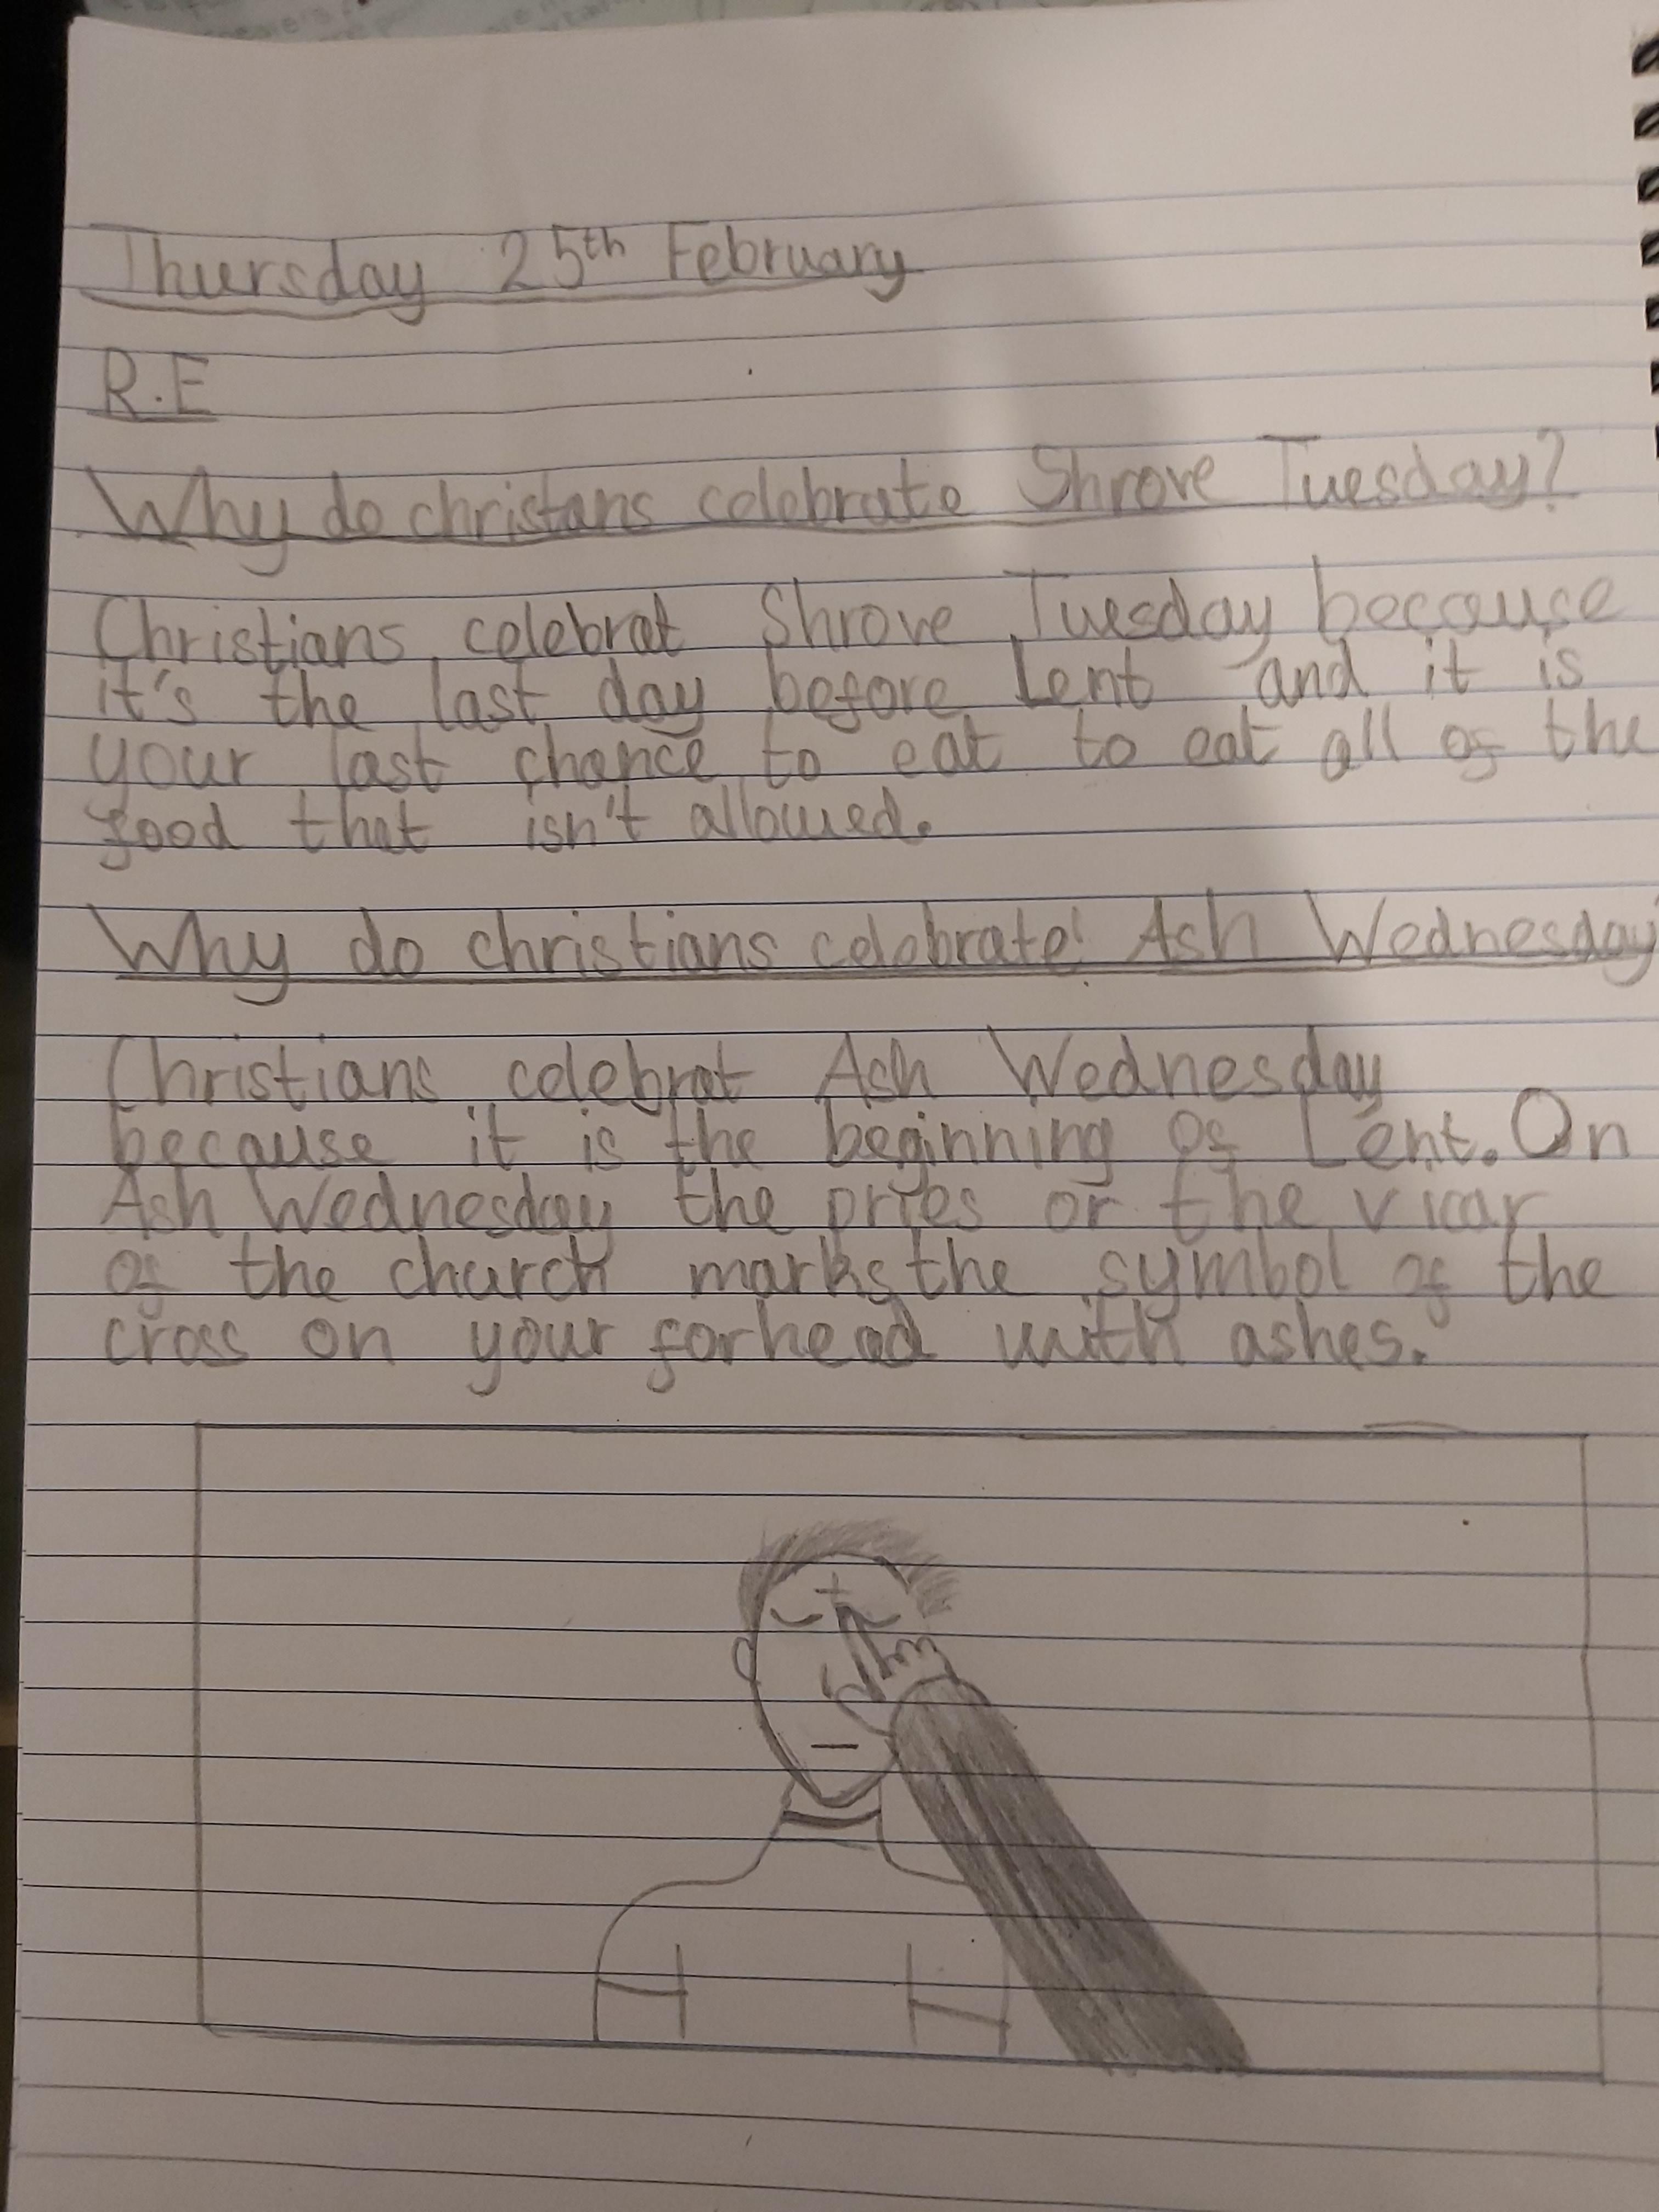 Thursday 25th February
R.E
Why do christans celebrate Shrove Tuesday?
Christians celebrat Shrove Tuesday because
it's the last day before Lent and it is
your last chance to eat to eat all of the
food that isn't allowed.
Why do christians celebrate Ash Wednesday
Christians celebrat Ash Wednesday
because it is the beginning of Lent. On
Ash Wednesday the pries or the vicar
of the church marks the symbol of the
cross on your forhead with ashes.